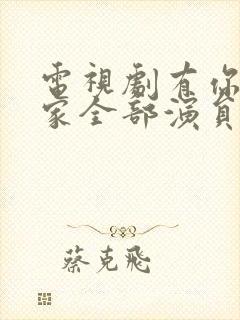 電視劇有你
家全部演員
蔡克飛